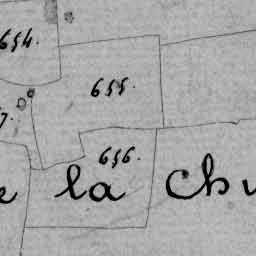 654.
655.
7.
656.
e la Chu